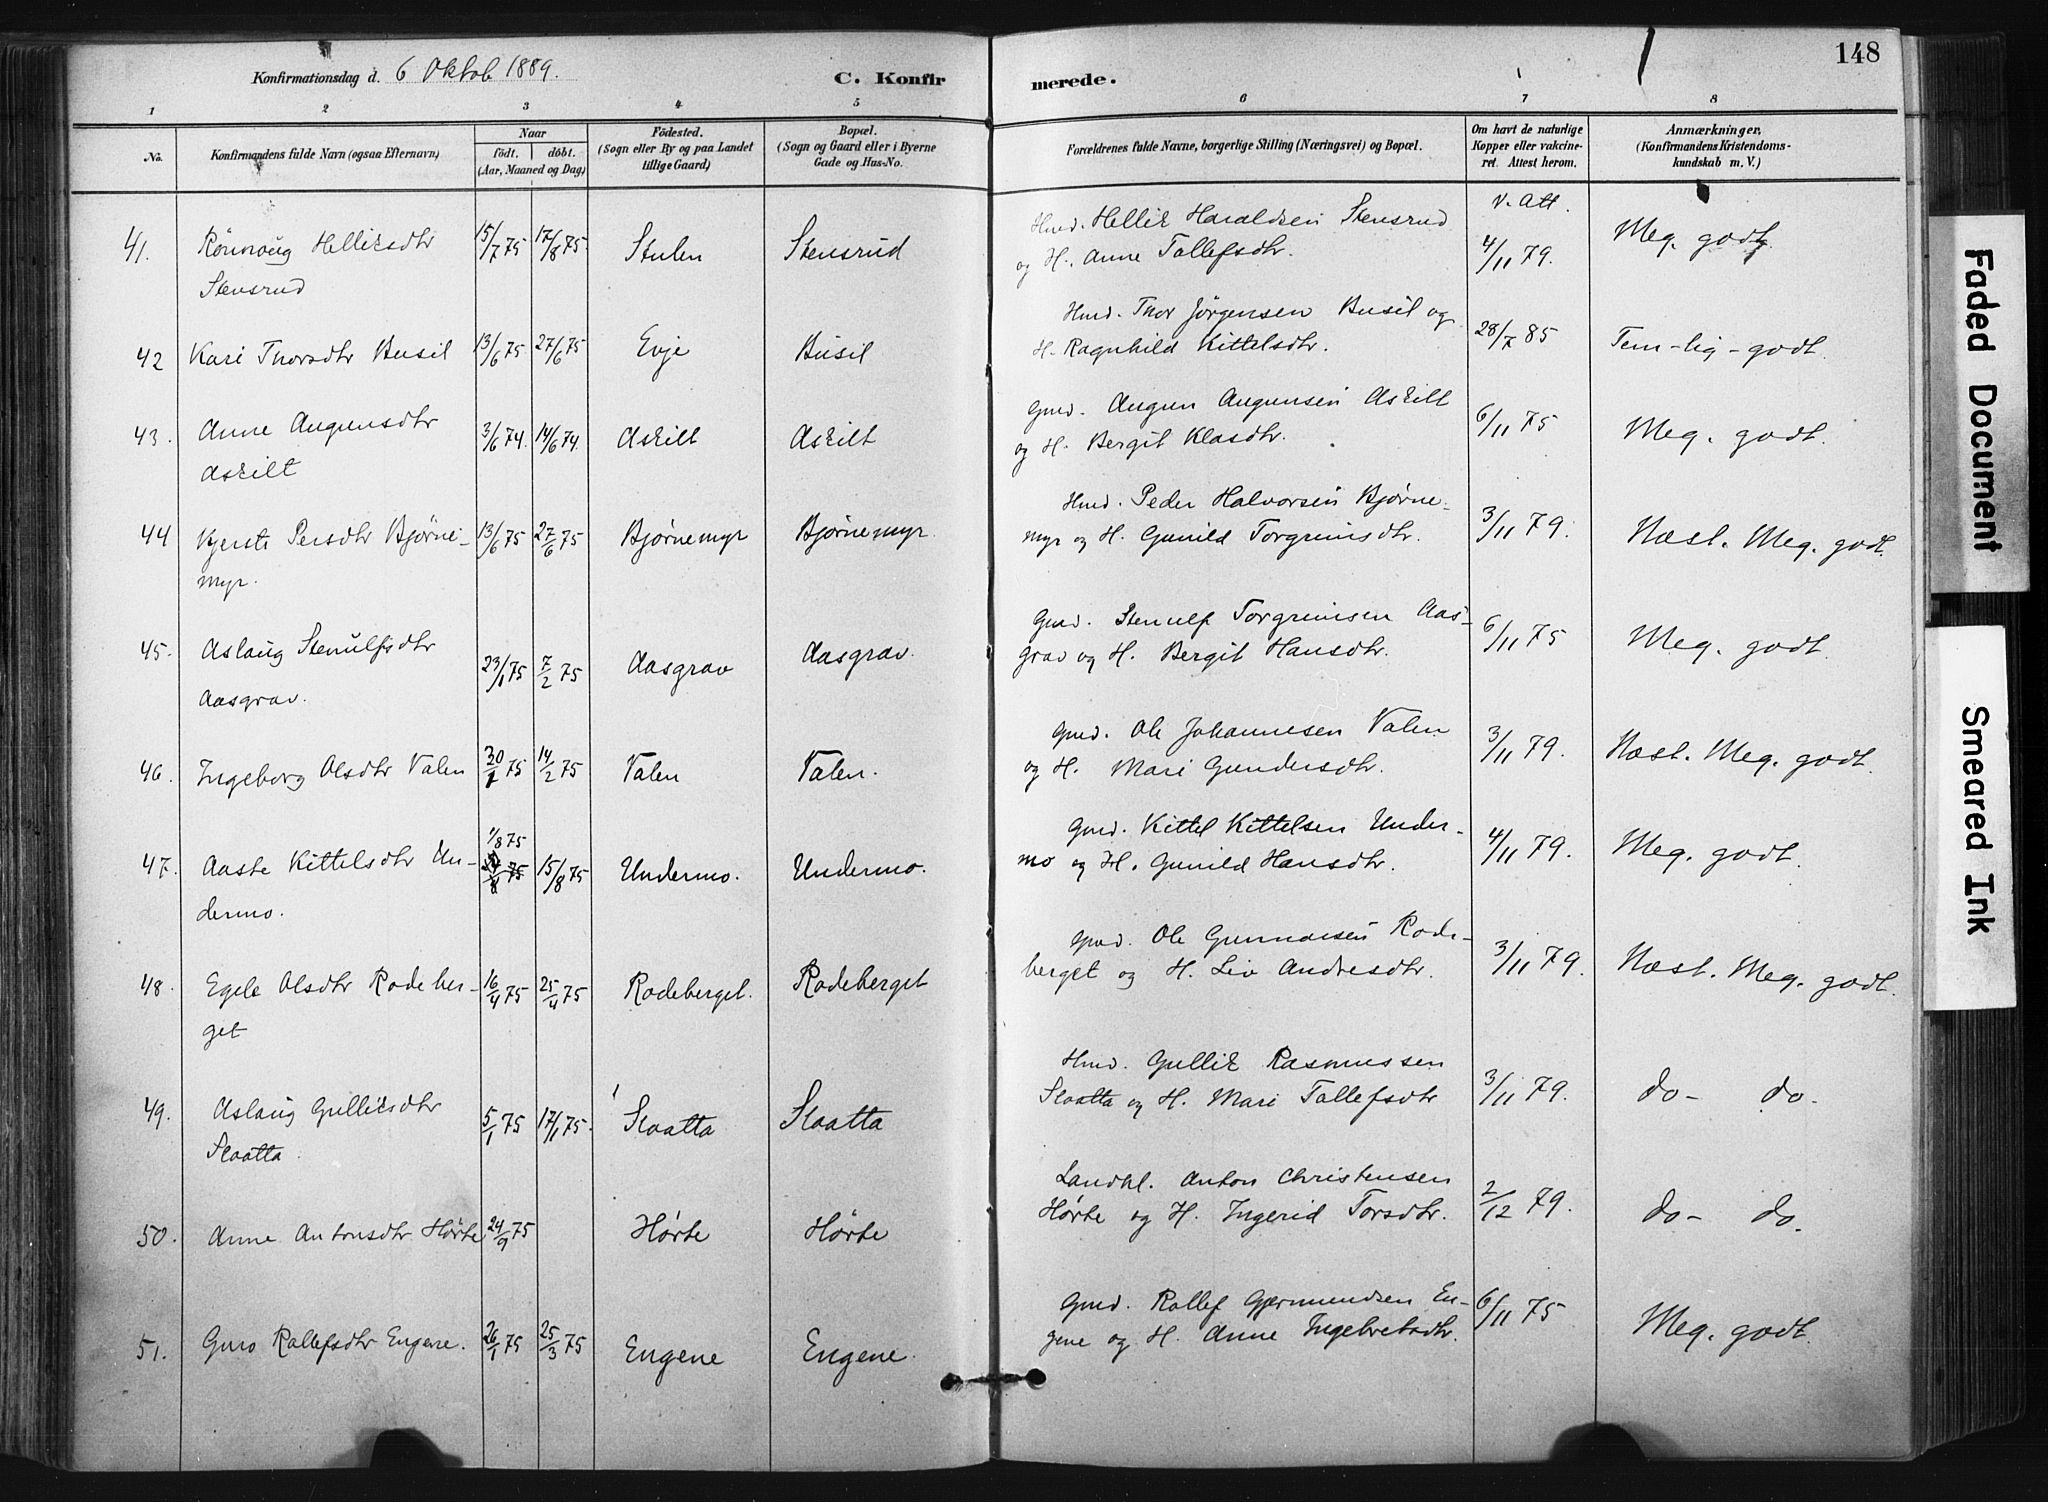 148
Konfirmationsdag d. 6 Oktob 1889.
C. Konfirmerede.
1 2 3 4 5 6 7 8
No.
Konfirmandens fulde Navn (ogsaa Efternavn).
Naar
födt. döbt.
(Aar, Maaned og Dag)
Födested.
(Sogn eller By og paa Landet
tillige Gaard)
Bopæl.
(Sogn og Gaard eller i Byerne
Gade og Hus-No.
Forældrenes fulde Navne, borgerlige Stilling (Næringsvei) og Bopæl.
Om havt de naturlige
Kopper eller vakcine-
ret. Attest herom.
Anmærkninger.
(Konfirmandens Kristendoms-
kundskab m. V.)
v. Att.
41. Rönnoug Helliksdtr 15/7 75 17/8 75. Stulen Stensrud Hmd. Hellik Haraldsen Stensrud 4/11 79. Meg. godt
Stensrud og H. Anne Tollefsdtr.
42 Kari Thorsdtr Busil 13/6 75 27/6 75 Evje Busil Hmd. Thor Jörgensen Busil og 28/7 85 Tem-lig-godt.
H. Ragnhild Kittelsdtr.
43. Anne Augunsdtr 3/6 74. 14/6 74. Askilt Askilt Gmd. Augun Augunsen Askilt 6/11 75 Meg. godt.
Askilt og H. Bergit Klasdtr.
44 Kjersti Persdtr Bjørne- 13/6 75 27/6 75 Bjørnemyr Bjørnemyr. Hmd. Peder Halvorsen Bjørne- 3/11 79. Næst. Meg. godt.
myr. myr og H. Gunild Torgrimsdtr.
45. Aslaug Stenulfsdtr 23/1 75 7/2 75 Aasgrav Aasgrav. Gmd. Stenulf Torgrimsen Aas- 6/11 75 Meg. godt.
Aasgrav. grav og H. Bergit Hansdtr.
46. Ingeborg Olsdtr Valen 30/1 75 14/2 75 Valen Valen. Gmd. Ole Johannesen Valen 3/11 79. Næst. Meg. godt.
og H. Mari Gundersdtr.
1/8 75
47. Aaste Kittelsdtr Un- 15/8 75 Undermo. Undermo. Gmd. Kittel Kittelsen Under- 4/11 79. Meg. godt.
dermo. mo og H. Gunild Hansdtr.
48. Egele Olsdtr Rodeber- 16/4 75 25/4 75 Rodeberget. Rodeberget Gmd. Ole Gunnarsen Rode- 3/11 79. Næst. Meg. godt.
get berget og H. Liv Andresdtr.
49. Aslaug Gulliksdtr 5/1 75 17/1 75. Slaatta Slaatta Hmd. Gullik Rasmussen 3/11 79. do- do-
Slaatta. Slaatta og H. Mari Tollefsdtr
50. Anne Antonsdtr Hörte 24/9 75 Hörte Hörte Landhl. Anton Christensen 2/12 79. do- do.
Hörte og H. Ingerid Torsdtr.
51. Guro Rollefsdtr Engene. 26/1 75 25/3 75 Engene Engene. Gmd. Rollef Gjermundsen En- 6/11 75 Meg. godt.
gene og H. Anne Ingebretsdtr.
Faded Document
Smeared Ink